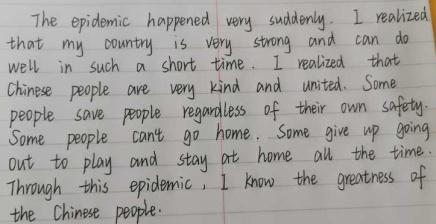 The epidemic happened very suddenly. I realized
that my country is very strong and can do
well in such a short time. I realized that
Chinese people are very kind and united. Some
people save people regardless of their own safety.
Some people can't go home. Some give up going
out to play and stay at home all the time.
Through this epidemic, I know the greatness of
the Chinese people.